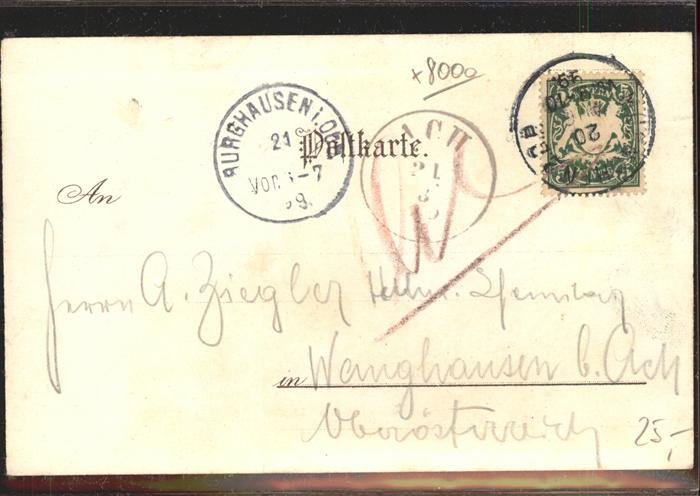 x8000
BURGHAUSEN I. OB.
21
Vor. 6-7
99.
ACH
Postkarte.
An
Herrn A. Ziegler
in Wanghausen b. Ach
Oberösterreich
25,-